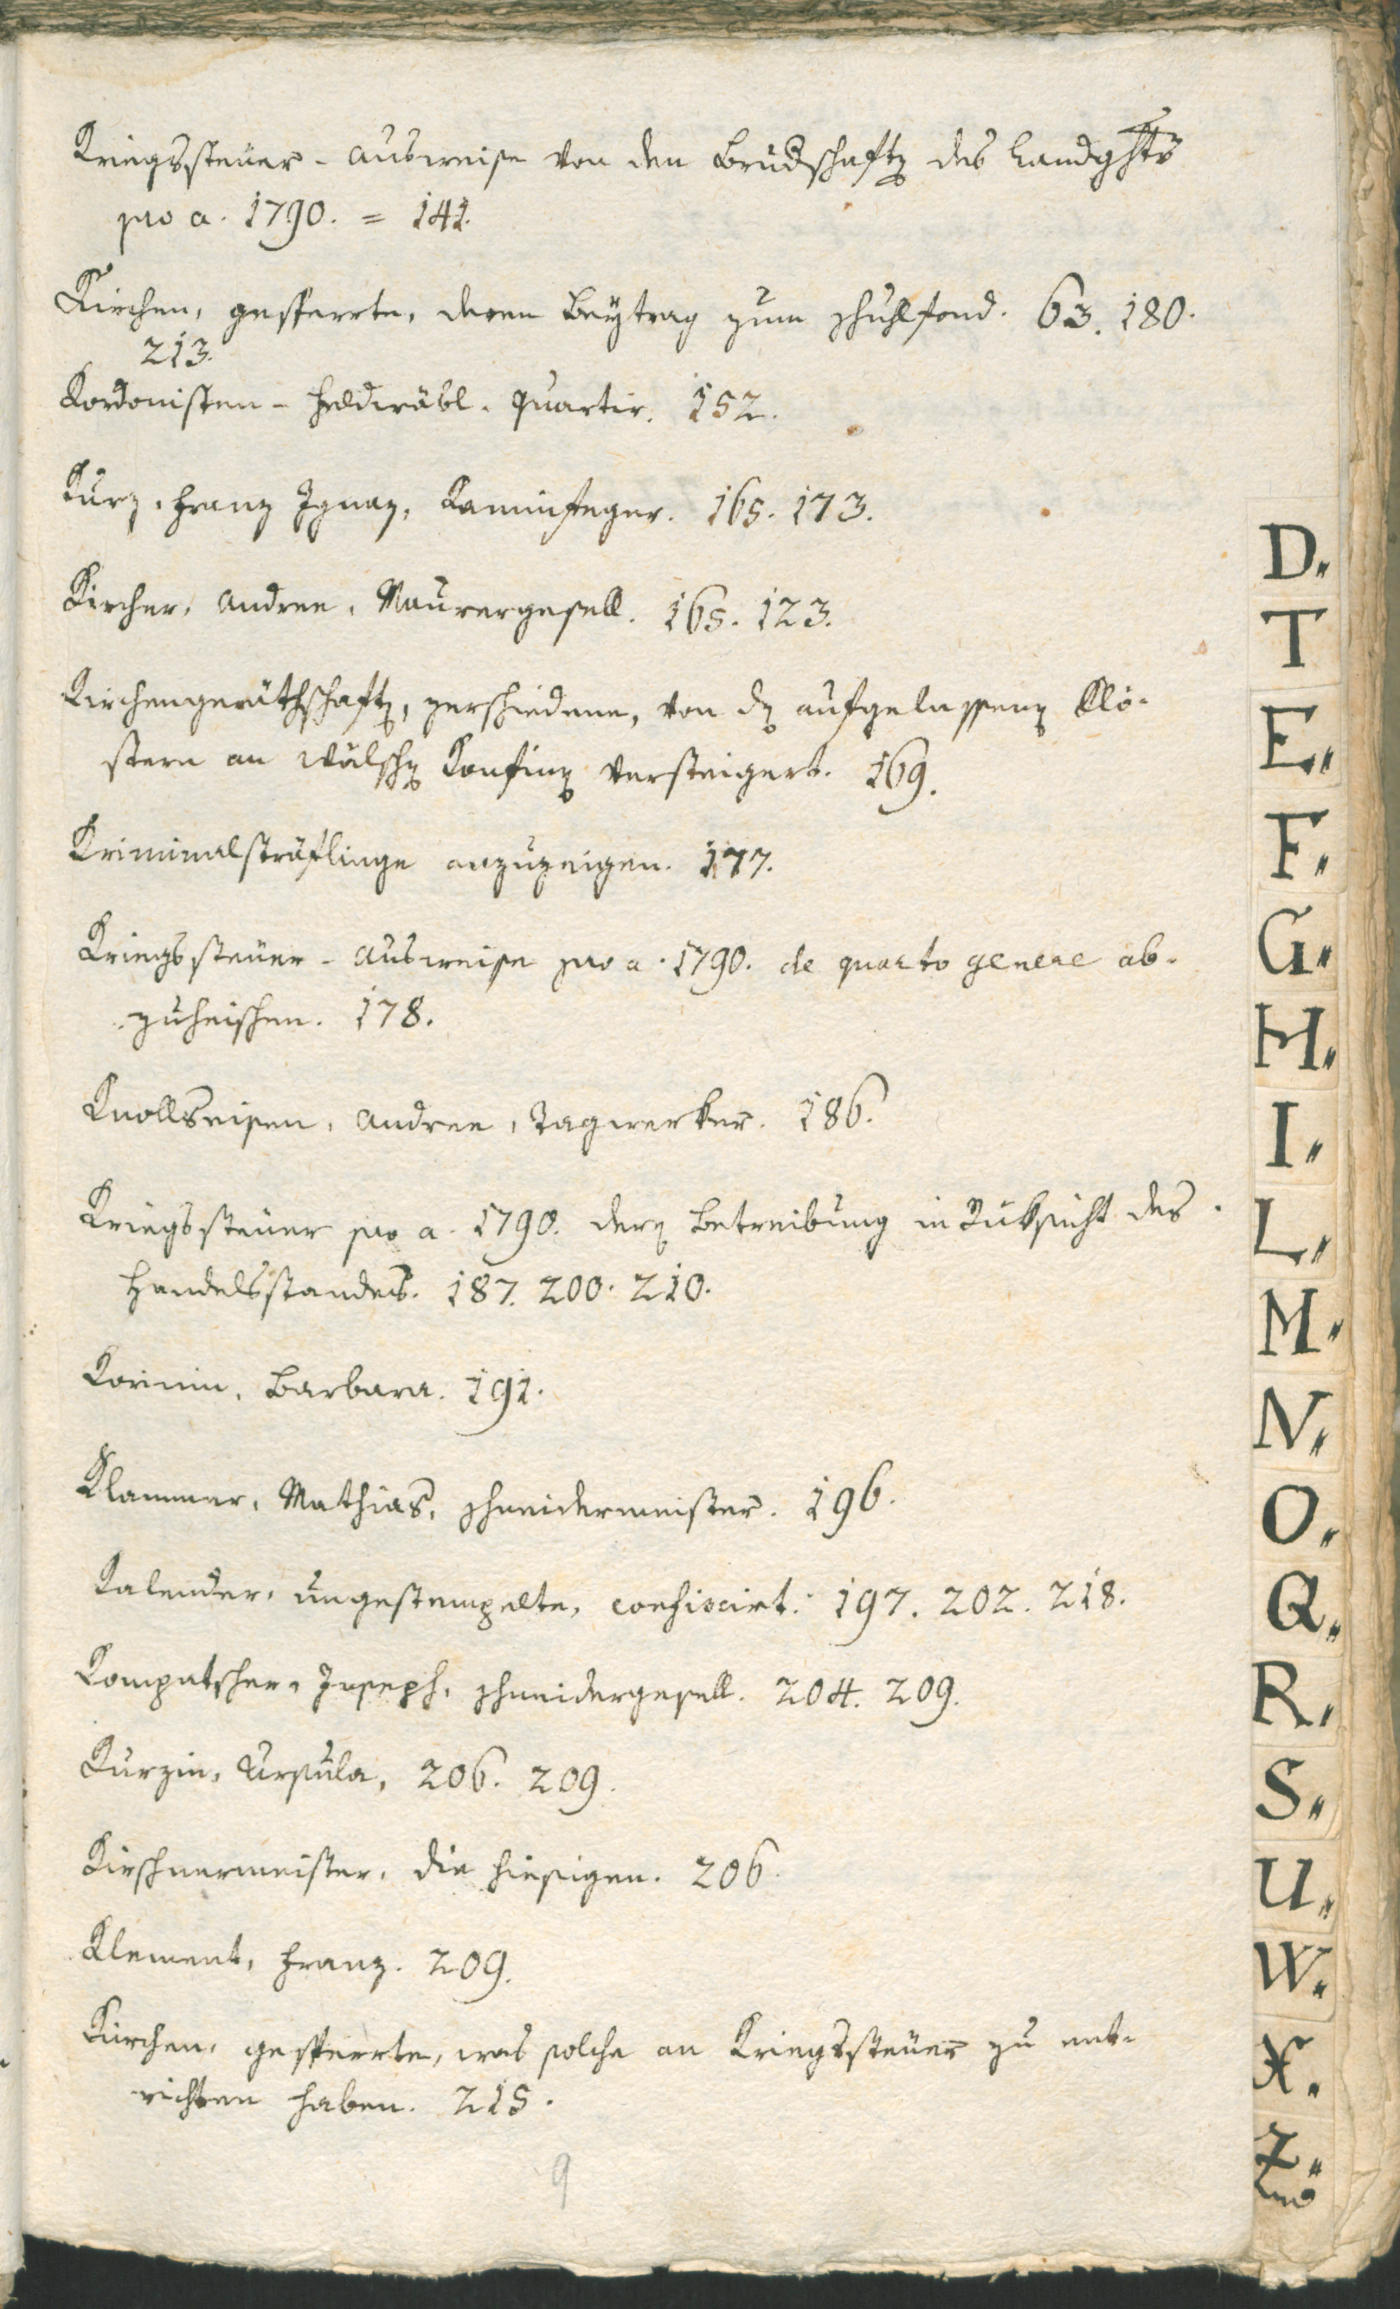 Kriegssteuer- Ausweise von den Brudschaften des Landghts
pro a. 1790. = 141.
Kirchen, gesperrte, deren Beytrag zum Schulfond. 63. 180.
213.
Kordonisten- Quartir. 152.
Kurz, Franz Ignaz, Kaminfeger. 165. 173.
Kircher, Andree, Maurergesell. 165. 123.
Kirchengeräthschaften, verschiedene, von den aufgelassenen Klö-
stern an wälschen Confinen versteigert. 169.
Kriminalsträflinge anzuzeigen. 177.
Kriegssteuer- Ausweise pro a. 1790. de quarto genere ab-
zuheischen. 178.
Knollseisen, Andree, Tagwerker. 186.
Kriegssteuer pro a. 1790. deren Betreibung in Rüksicht des
Handelsstandes. 187. 200. 210.
Barbara. 191.
Klammer, Mathias, Schneidermeister. 196.
Kalender, ungestempelte, confiscirt. 197. 202. 218.
Kompatscher, Joseph, Schneidergesell. 204. 209.
Kurzin, Ursula, 206. 209.
Kirschnermeister, die hiesigen. 206.
Klement, Franz. 209.
Kirchen, gesperrte, was solche an Kriegssteuer zu ent-
richten haben. 215.
9
D.
T
E.
F.
G.
H.
I.
L.
M.
N.
O.
Q.
R.
S.
U.
W.
X.
Z.